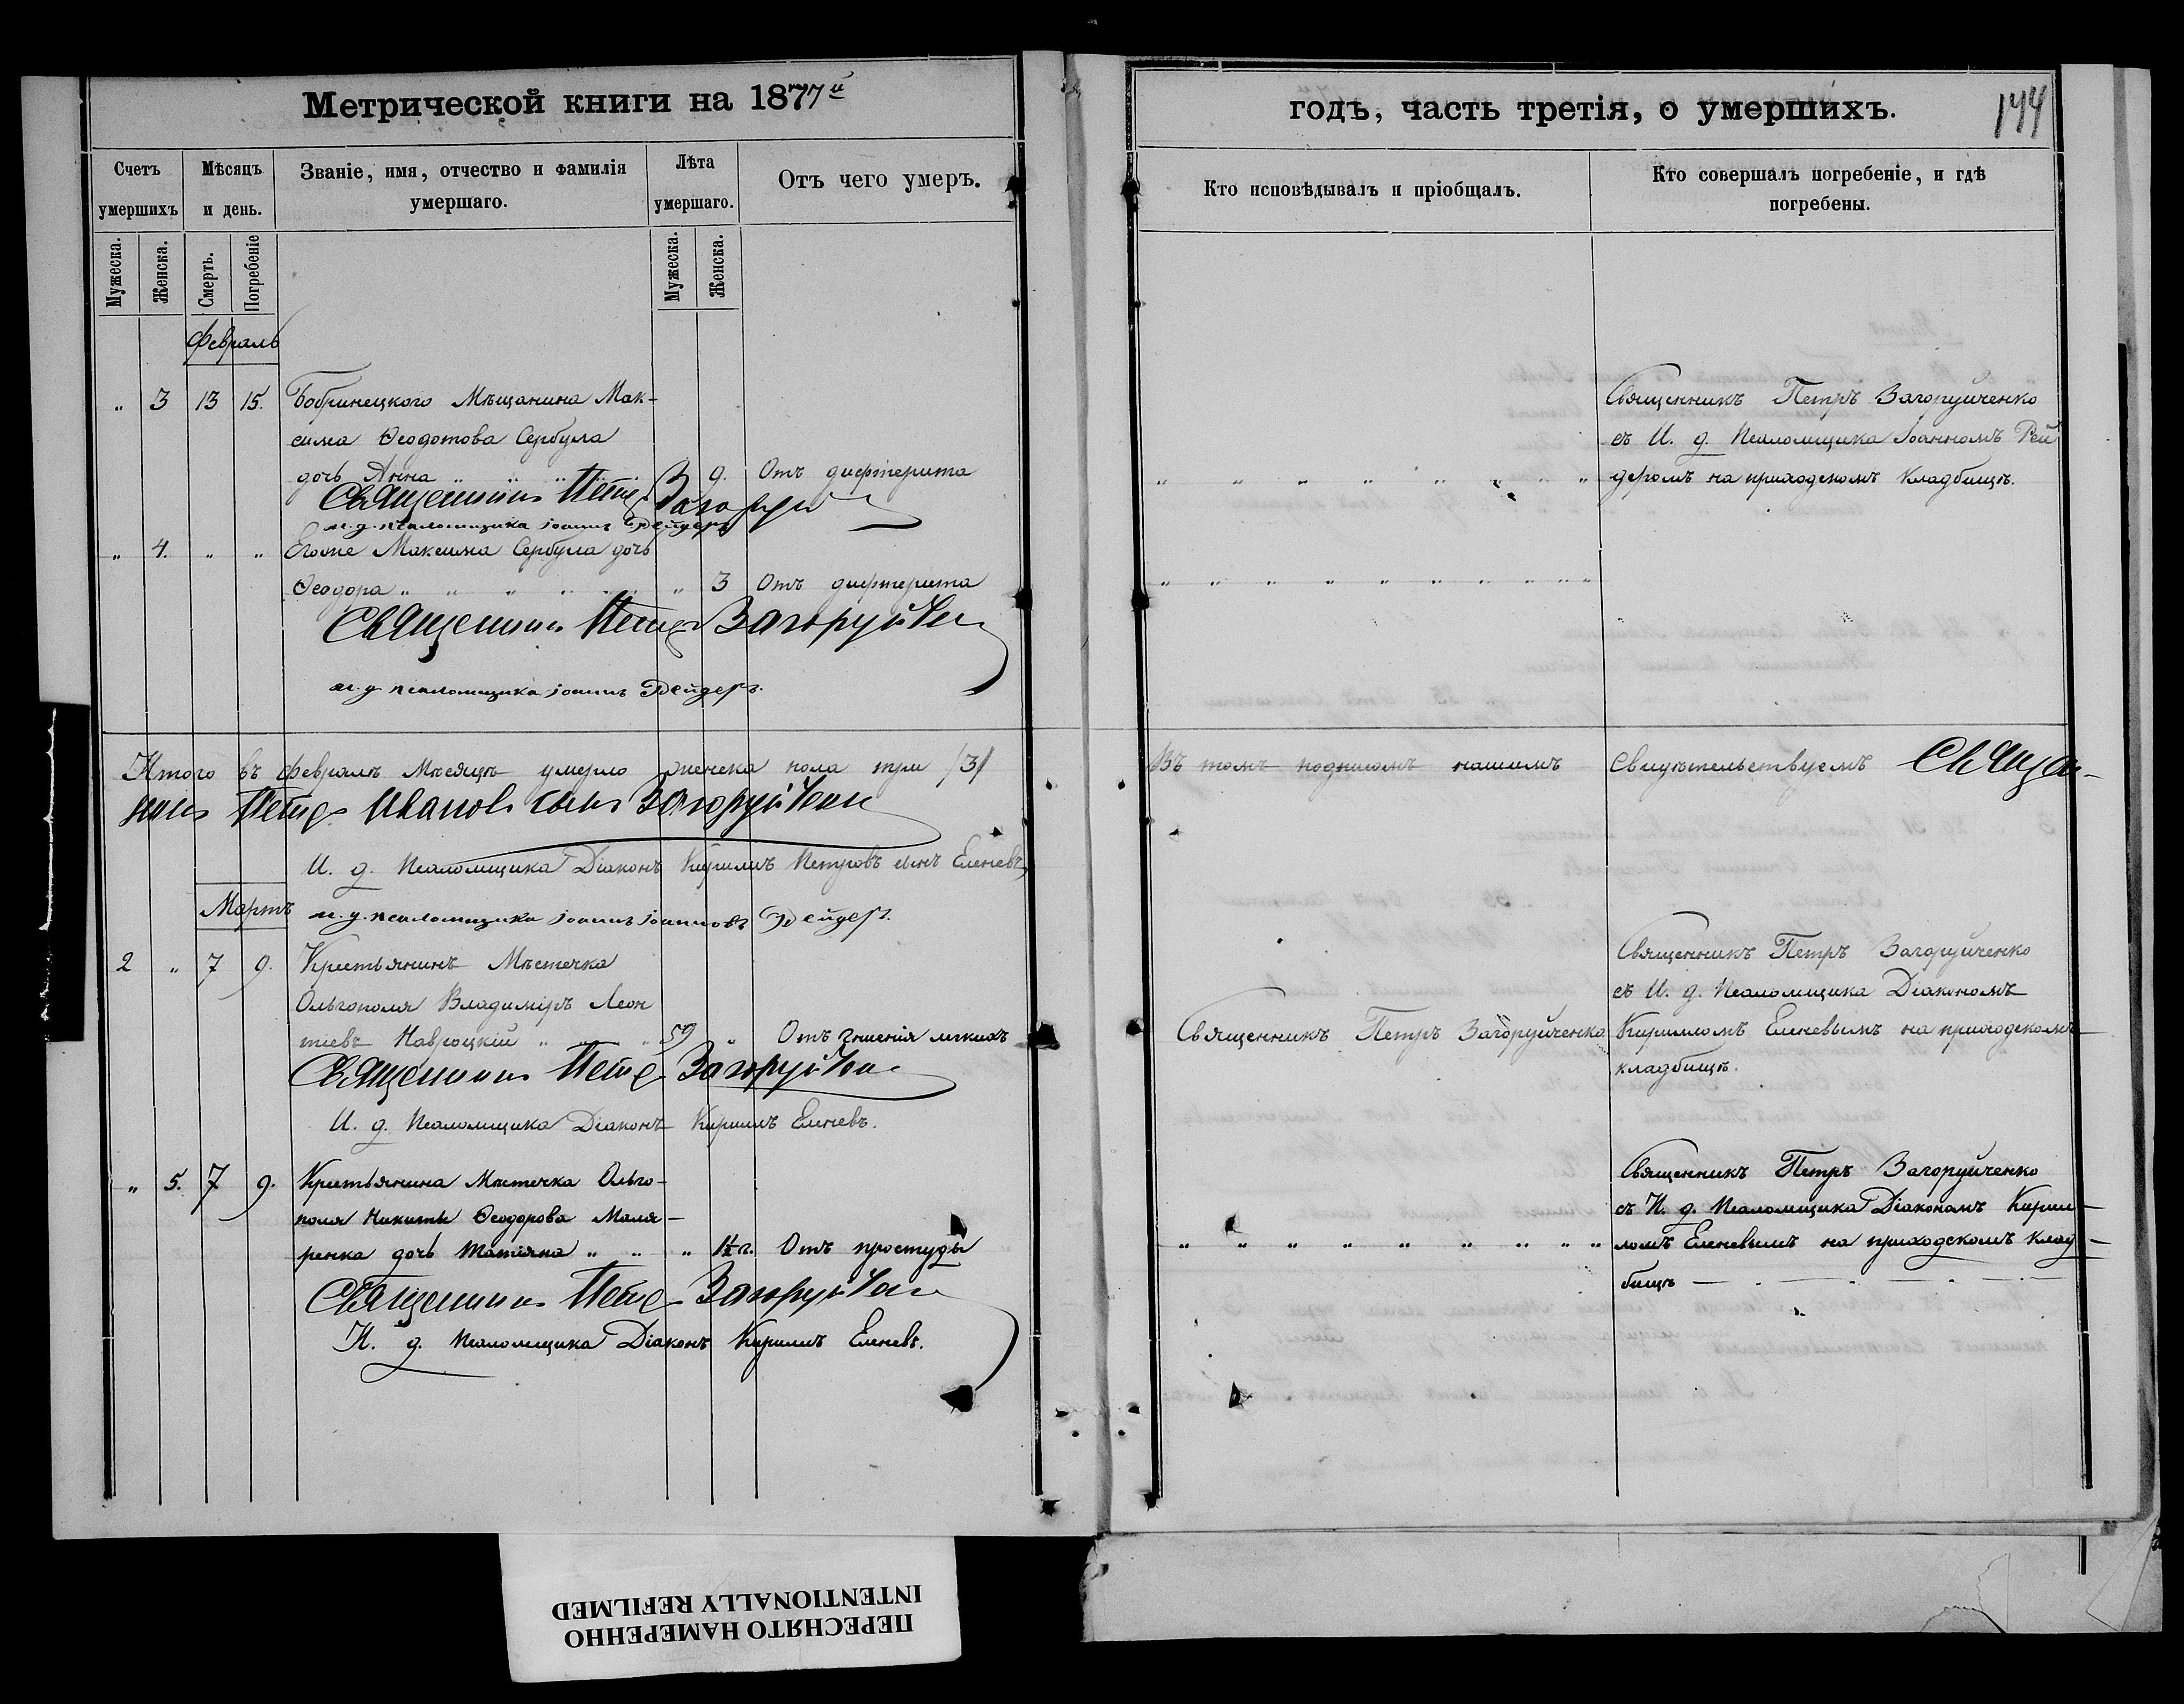 Метрической книги на 1877й
годъ, часть третія, о умершихъ.
144
Счетъ умершихъ
Мѣсяцъ и день.
Званіе, имя, отчество и фамилія умершаго.
Лѣта умершаго.
Отъ чего умеръ.
Кто исповѣдывалъ и пріобщалъ.
Кто совершалъ погребеніе, и гдѣ погребены.
Мужеска.
Женска.
Смерть.
Погребеніе
Мужеска.
Женска.
Февраль
" 3 13 15. Бобринецкого Мѣщанина Мак-
сима Ѳеодотова Сербула
дочь Анна " " " " 9. Отъ дифтерита
Священникъ Петръ Загоруйч
и. д. псаломщика Іоаннъ Рейдеръ
Священникъ Петръ Загоруйченко
съ И. д. Псаломщика Іоанномъ Рей
деромъ на приходскомъ кладбищѣ.
" 4. " " Егоже Максима Сербула дочь
Ѳеодора " " " " " 3 Отъ дифтерита
Священникъ Петръ Загоруйчен
и. д. псаломщика Іоаннъ Рейдеръ.
Итого въ Февралѣ Мѣсяцѣ умерло женска пола три /3/
Въ томъ подписомъ нашимъ свидѣтельствуемъ Священ-
никъ Петръ Ивановъ сынъ Загоруйченко
И. д. Псаломщика Діаконъ Кириллъ Петровъ сынъ Еленевъ
и. д. псаломщика Іоаннъ Іоанновъ Рейдеръ.
Мартъ
2 " 7 9. Крестьянинъ Мѣстечка
Ольгополя Владиміръ Леон
тіевъ Навроцкій " " " 59 " Отъ гніенія легкихъ
Священникъ Петръ Загоруйченко
И. д. Псаломщика Діаконъ Кириллъ Еленевъ.
Священникъ Петръ Загоруйченко
Священникъ Петръ Загоруйченко
съ И. д. Псаломщика Діакономъ
Кирилломъ Еленевымъ на приходскомъ
кладбищѣ.
" 5. 7 9. Крестьянина Мѣстечка Ольго-
поля Никиты Ѳеодорова Маля-
ренка дочь Татіяна " " " 1½ г. Отъ простуды
Священникъ Петръ Загоруйченко
И. д. Псаломщика Діаконъ Кириллъ Еленевъ.
Священникъ Петръ Загоруйченко
съ И. д. Псаломщика Діакономъ Кирил-
ломъ Еленевымъ на приходскомъ клад-
бищѣ
ПЕРЕСНЯТО НАМЕРЕННО
INTENTIONALLY REFILMED